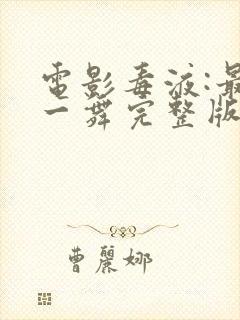 電影毒液:最
一舞完整版
曹麗娜